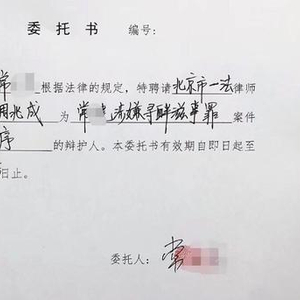 委托书 编号：
常 根据法律的规定，特聘请北京市一法律师
周兆成 为 常 涉嫌寻衅滋事罪 案件
序 的辩护人。本委托书有效期自即日起至
日止。
委托人：常